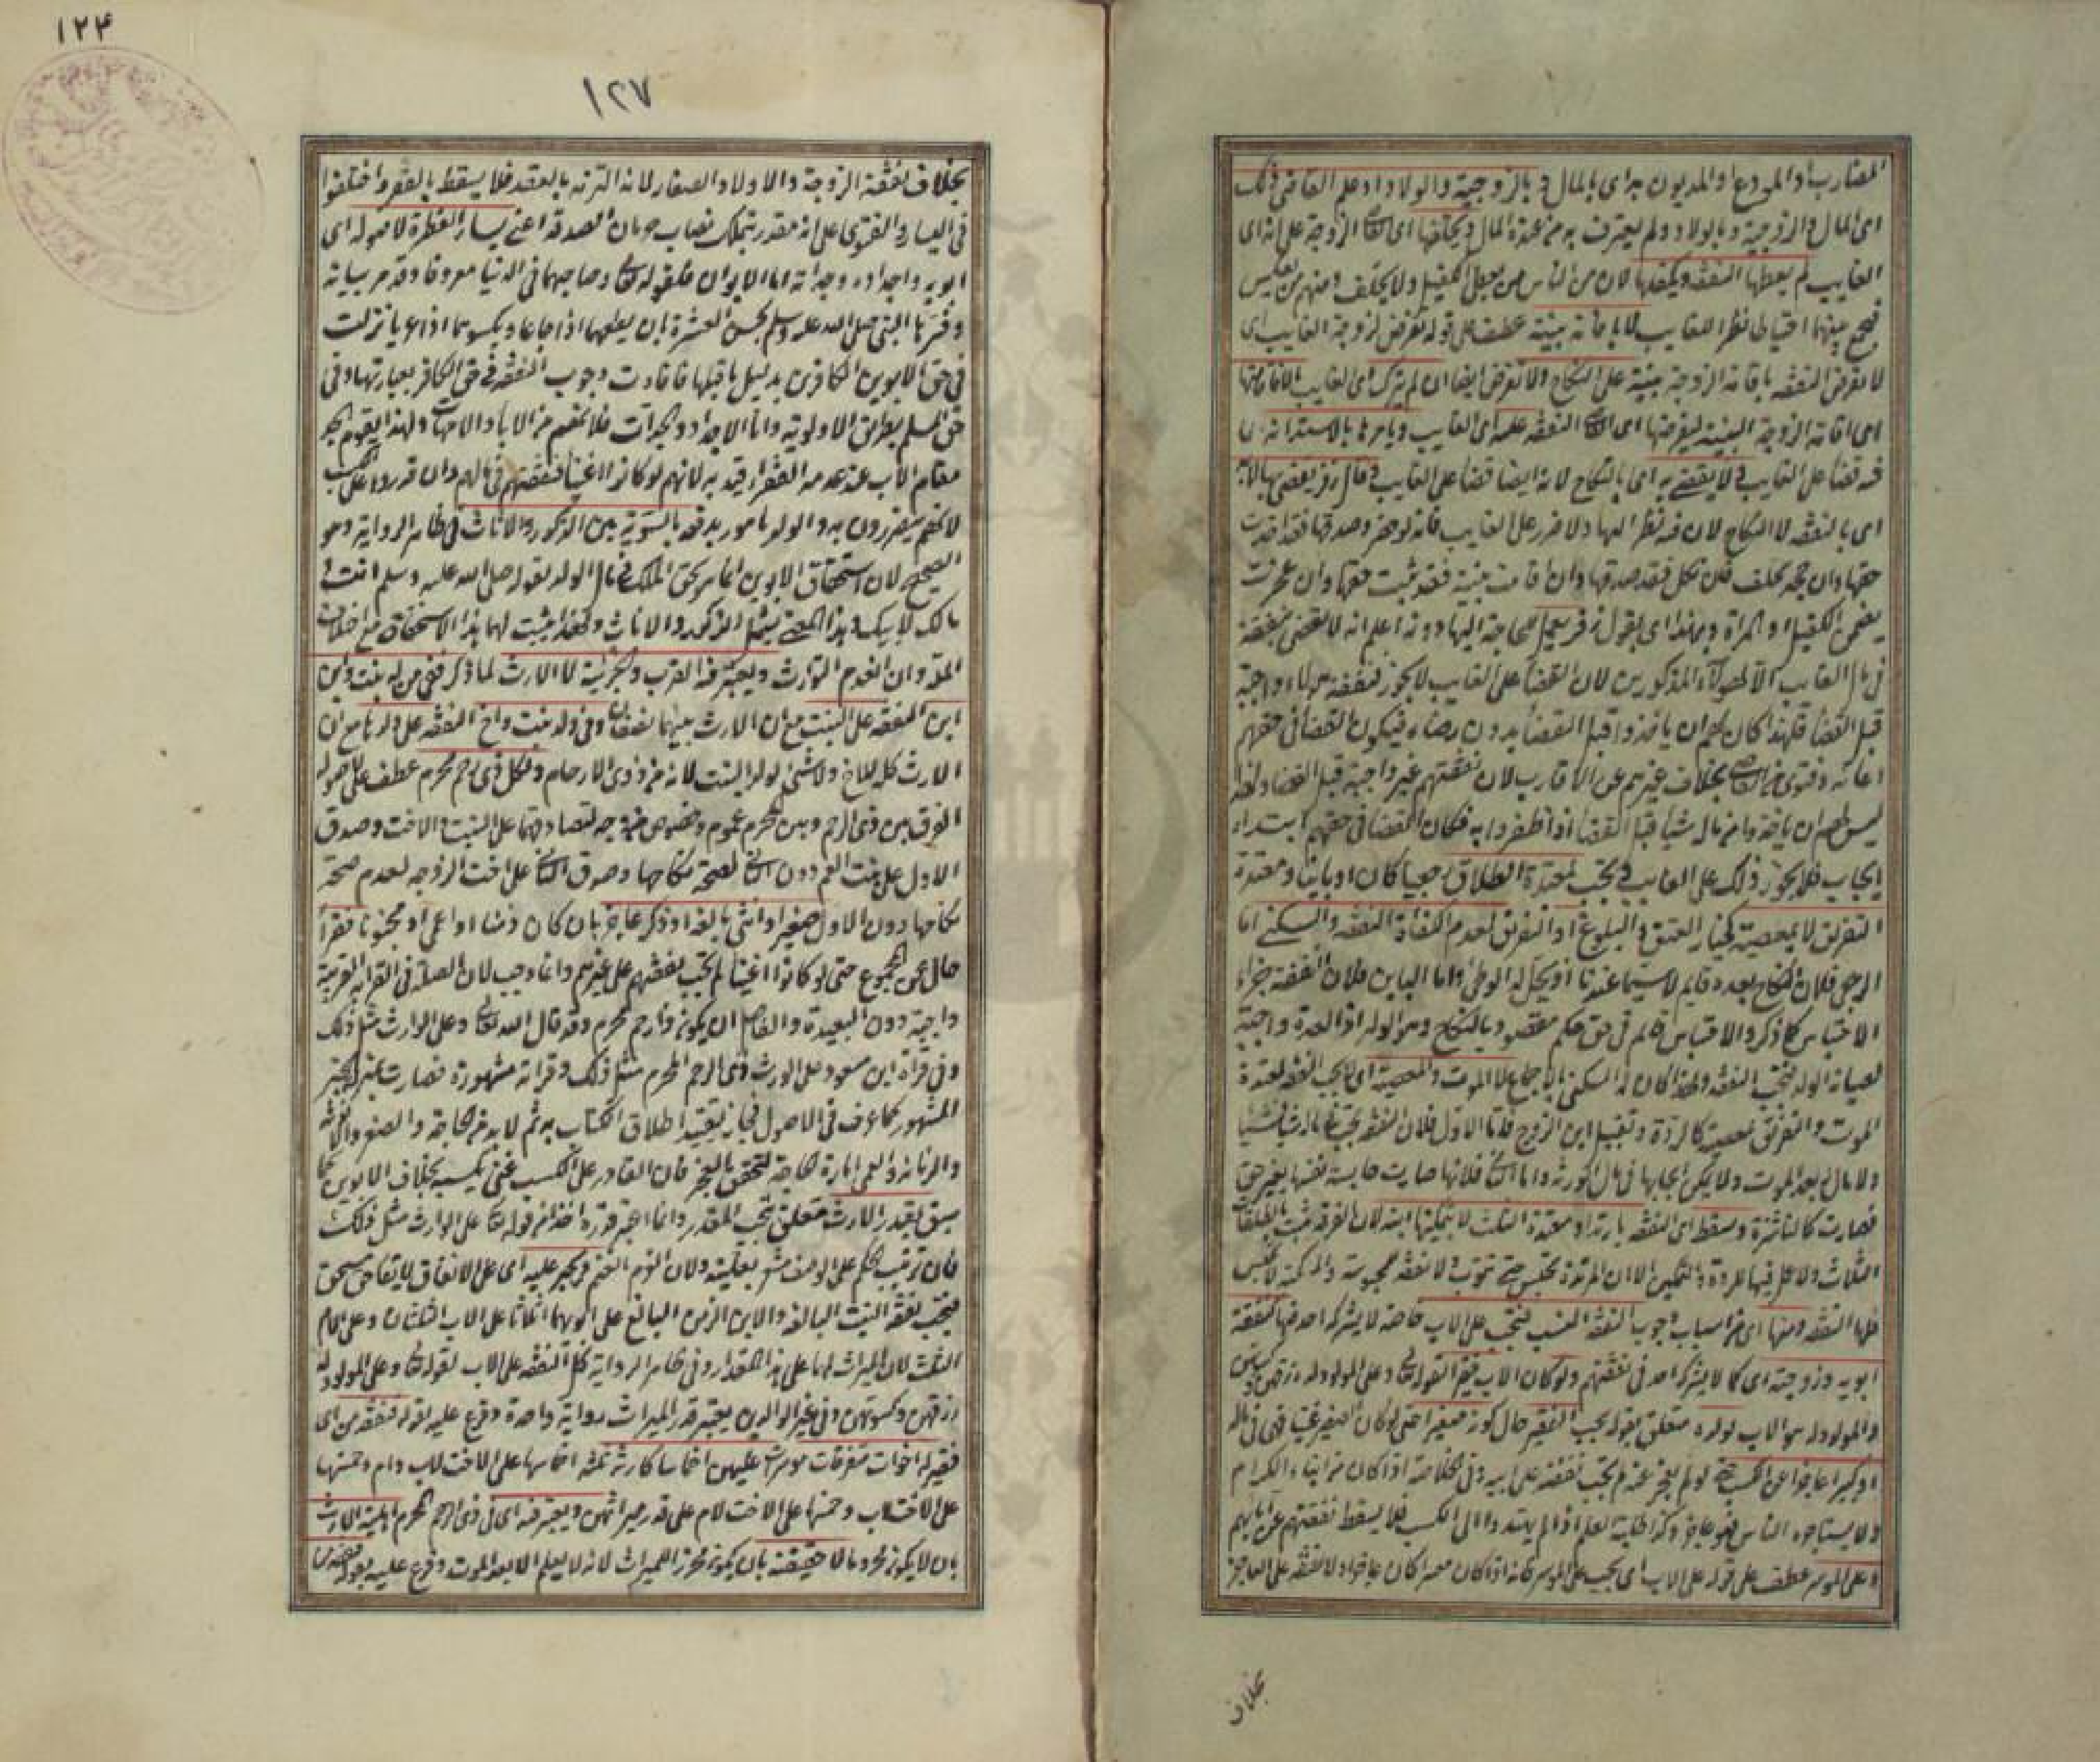 المضارب أو المودع أو المديون به اى بالمال وبالزوجية والولاد او علم القاضى ذلك
اى المال والزوجية والولاد ولم يعترف به من عنده المال ويحلفها اى القاضى الزوجة على انه اى
الغايب لم يعطها النفقة ويكفلها لان من الناس من يعطى الكفيل ولا يحلف ومنهم من يعكس
فيجمع بينهما احتياطا نظرا للغايب لا باقامة بينة عطف على قوله تفرض لزوجة الغايب اى
لا تفرض النفقة باقامة الزوجة بينة على النكاح ولا تفرض ايضا ان لم يترك اى الغايب مالا فاقامتها
اى اقامة الزوجة البينة ليفرضها اى القاضى النفقة عليه اى الغايب ويامرها بالاستدانة لان
فيه قضاء على الغايب ولا يقضى به اى بالنكاح لانه ايضا قضاء على الغايب وقال زفر يقضى بها لا به
اى بالنفقة لا النكاح لان فيه نظرا لها ولا ضرر على الغايب فانه لو حضر وصدقها فقد اخذت
حقها وان جحد يحلف فان نكل فقد صدقها وان اقامت بينة فقد ثبت حقها وان عجزت
يضمن الكفيل او المراة وبهذا اى بقول زفر يعمل للحاجة اليها واعلم انه لا يقضى بنفقة
فى مال الغايب الا لهؤلاء المذكورين لان القضاء على الغايب لا يجوز فنفقة هؤلاء واجبة
قبل القضاء فلهذا كان لهم ان ياخذوا قبل القضاء بدون رضاه فيكون القضاء فى حقهم
اعانة وفتوى من القاضى بخلاف غيرهم من الاقارب لان نفقتهم غير واجبة قبل القضاء ولهذا
ليس لهم ان ياخذوا من ماله شيئا قبل القضاء اذا ظفروا به فكان القضاء فى حقهم ابتداء
ايجاب فلا يجوز ذلك على الغايب وتجب لمعتدة الطلاق رجعيا كان او باينا ومعتدة
التفريق لا بمعصية كخيار العتق والبلوغ او التفريق لعدم الكفاءة النفقة والسكنى اما
الرجعى فلان النكاح بعده قايم لا سيما عندنا اذ يحل له الوطئ واما الباين فلان النفقة جزاء
الاحتباس كما ذكر والاحتباس قايم فى حق حكم مقصود بالنكاح وهو الولد اذ العدة واجبة
لصيانة الولد فتجب النفقة ولهذا كان لها السكنى بالاجماع لا الموت والمعصية اى لا تجب النفقة لمعتدة
الموت والتفريق بمعصية كالردة وتقبيل ابن الزوج فاما الاول فلان النفقة تجب فى ماله شيئا فشيئا
ولا مال له بعد الموت ولا يمكن ايجابها فى مال الورثة واما الثانى فلانها صارت حابسة نفسها بغير حق
فصارت كالناشزة وتسقط اى النفقة بارتداد معتدة الثلث لا بتمكينها ابنه لان الفرقة ثبتت بالطلقات
الثلاث ولا عمل فيها للردة والتمكين الا ان المرتدة تحبس حتى تتوب ولا نفقة لمحبوسة والممكنة لا تحبس
فلها النفقة ومنها اى من اسباب وجوب النفقة النسب فتجب على الاب خاصة لا يشركه احد فيها كنفقة
ابويه وزوجته اى كما لا يشركه احد فى نفقتهم ولو كان الاب فقيرا لقوله تعالى وعلى المولود له رزقهن وكسوتهن
والمولود له هو الاب لولده متعلق بقوله تجب الفقير حال كونه صغيرا حتى لو كان الصغير غنيا فهى فى ماله
او كبيرا عاجزا عن الكسب حتى لو لم يعجز عنه لم تجب نفقته على ابيه وفى الخلاصة اذا كان من ابناء الكرام
ولا يستاجره الناس فهو عاجز وكذا طلبة العلم اذا لم يهتدوا الى الكسب فلا يسقط نفقتهم عن ابائهم
وعلى الموسر عطف على قوله على الاب اى تجب على الموسر فانه اذا كان معسرا كان عاجزا ولا نفقة على العاجز
بخلاف
١٢٤
١٢٧
بخلاف نفقة الزوجة والاولاد الصغار لانه التزمه بالعقد فلا يسقط بالفقر واختلفوا
فى اليسار والفتوى على انه مقدر بتملك نصاب حرمان الصدقة اعنى يسار الفطرة لاصوله اى
ابويه واجداده وجداته اما الابوان فلقوله تعالى وصاحبهما فى الدنيا معروفا وقد مر بيانه
وفسرها النبى صلى الله عليه وسلم بحسن العشرة بان يطعمهما اذا جاعا ويكسوهما اذا عريا نزلت
فى حق الابوين الكافرين بدليل ما قبلها فافادت وجوب النفقة فى حق الكافر بعبارتها وفى
حق المسلم بطريق الاولوية واما الاجداد والجدات فلانهم من الاباء والامهات ولهذا يقوم الجد
مقام الاب عند عدمه الفقراء قيد به لانهم لو كانوا اغنياء فنفقتهم فى مالهم وان قدروا على الكسب
لانهم يتضررون به والولد مامور بدفعه بالسوية بين الذكور والاناث فى ظاهر الرواية وهو
الصحيح لان استحقاق الابوين انما هو بحق الملك فى مال الولد لقوله صلى الله عليه وسلم انت و
مالك لابيك وهذا المعنى يشمل الذكور والاناث ولهذا يثبت لهما هذا الاستحقاق مع اختلاف
الملة وان انعدم التوارث ويعتبر فيه القرب والجزئية لا الارث لما ذكر ففى من له بنت وابن
ابن النفقة على البنت مع ان الارث بينهما نصفان وفى ولد بنت واخ النفقة على ولدها مع ان
الارث كله للاخ ولا شئ لولد البنت لانه من ذوى الارحام ولكل ذى رحم محرم عطف على لاصوله
الفرق بين ذى الرحم وبين المحرم عموم وخصوص من وجه لتصادقهما على البنت والاخت وصدق
الاول على بنت العم دون الثانى لصحة نكاحها وصدق الثانى على اخت الزوجة لعدم صحة
نكاحها دون الاول صغير او انثى بالغة او ذكر عاجز بان كان زمنا او اعمى او مجنونا فقراء
حال من المجموع حتى لو كانوا اغنياء لم تجب نفقتهم على غيرهم وانما وجب لان الصلة فى القرابة القريبة
واجبة دون البعيدة والفاصل ان يكون ذا رحم محرم وقد قال الله تعالى وعلى الوارث مثل ذلك
وفى قراة ابن مسعود وعلى الوارث ذى الرحم المحرم مثل ذلك وقراته مشهورة فصارت بمنزلة الخبر
المشهور كما عرف فى الاصول فجاز تقييد اطلاق الكتاب به ثم لا بد من الحاجة والصغر والانوثة
والزمانة والعمى امارة الحاجة لتحقق العجز فان القادر على الكسب غنى بكسبه بخلاف الابوين كما
سبق بقدر الارث متعلق بتجب المقدر وانما اعتبر قدره اخذا من قوله تعالى على الوارث مثل ذلك
فان ترتيب الحكم على الوصف مشعر بعليته ولان الغرم بالغنم ويجبر عليه اى على الانفاق لايفاء حق مستحق
فتجب نفقة البنت البالغة والابن الزمن البالغ على ابويهما اثلاثا على الاب الثلثان وعلى الام
الثلث لان الميراث لهما على هذا المقدار وفى ظاهر الرواية كل النفقة على الاب لقوله تعالى وعلى المولود له
رزقهن وكسوتهن وفى غير الوالدين يعتبر قدر الميراث رواية واحدة وفرع عليه بقوله فنفقة من اى
فقير له اخوات متفرقات موسرات عليهن اخماسا كارثه ثلثة اخماسها على الاخت لاب وام وخمسها
على الاخت لاب وخمسها على الاخت لام على قدر ميراثهن ويعتبر فيه اى فى ذى الرحم المحرم اهلية الارث
بان لا يكون محروما لا حقيقته بان يكون محرزا للميراث لانه لا يعلم الا بعد الموت وفرع عليه بقوله فنفقة من